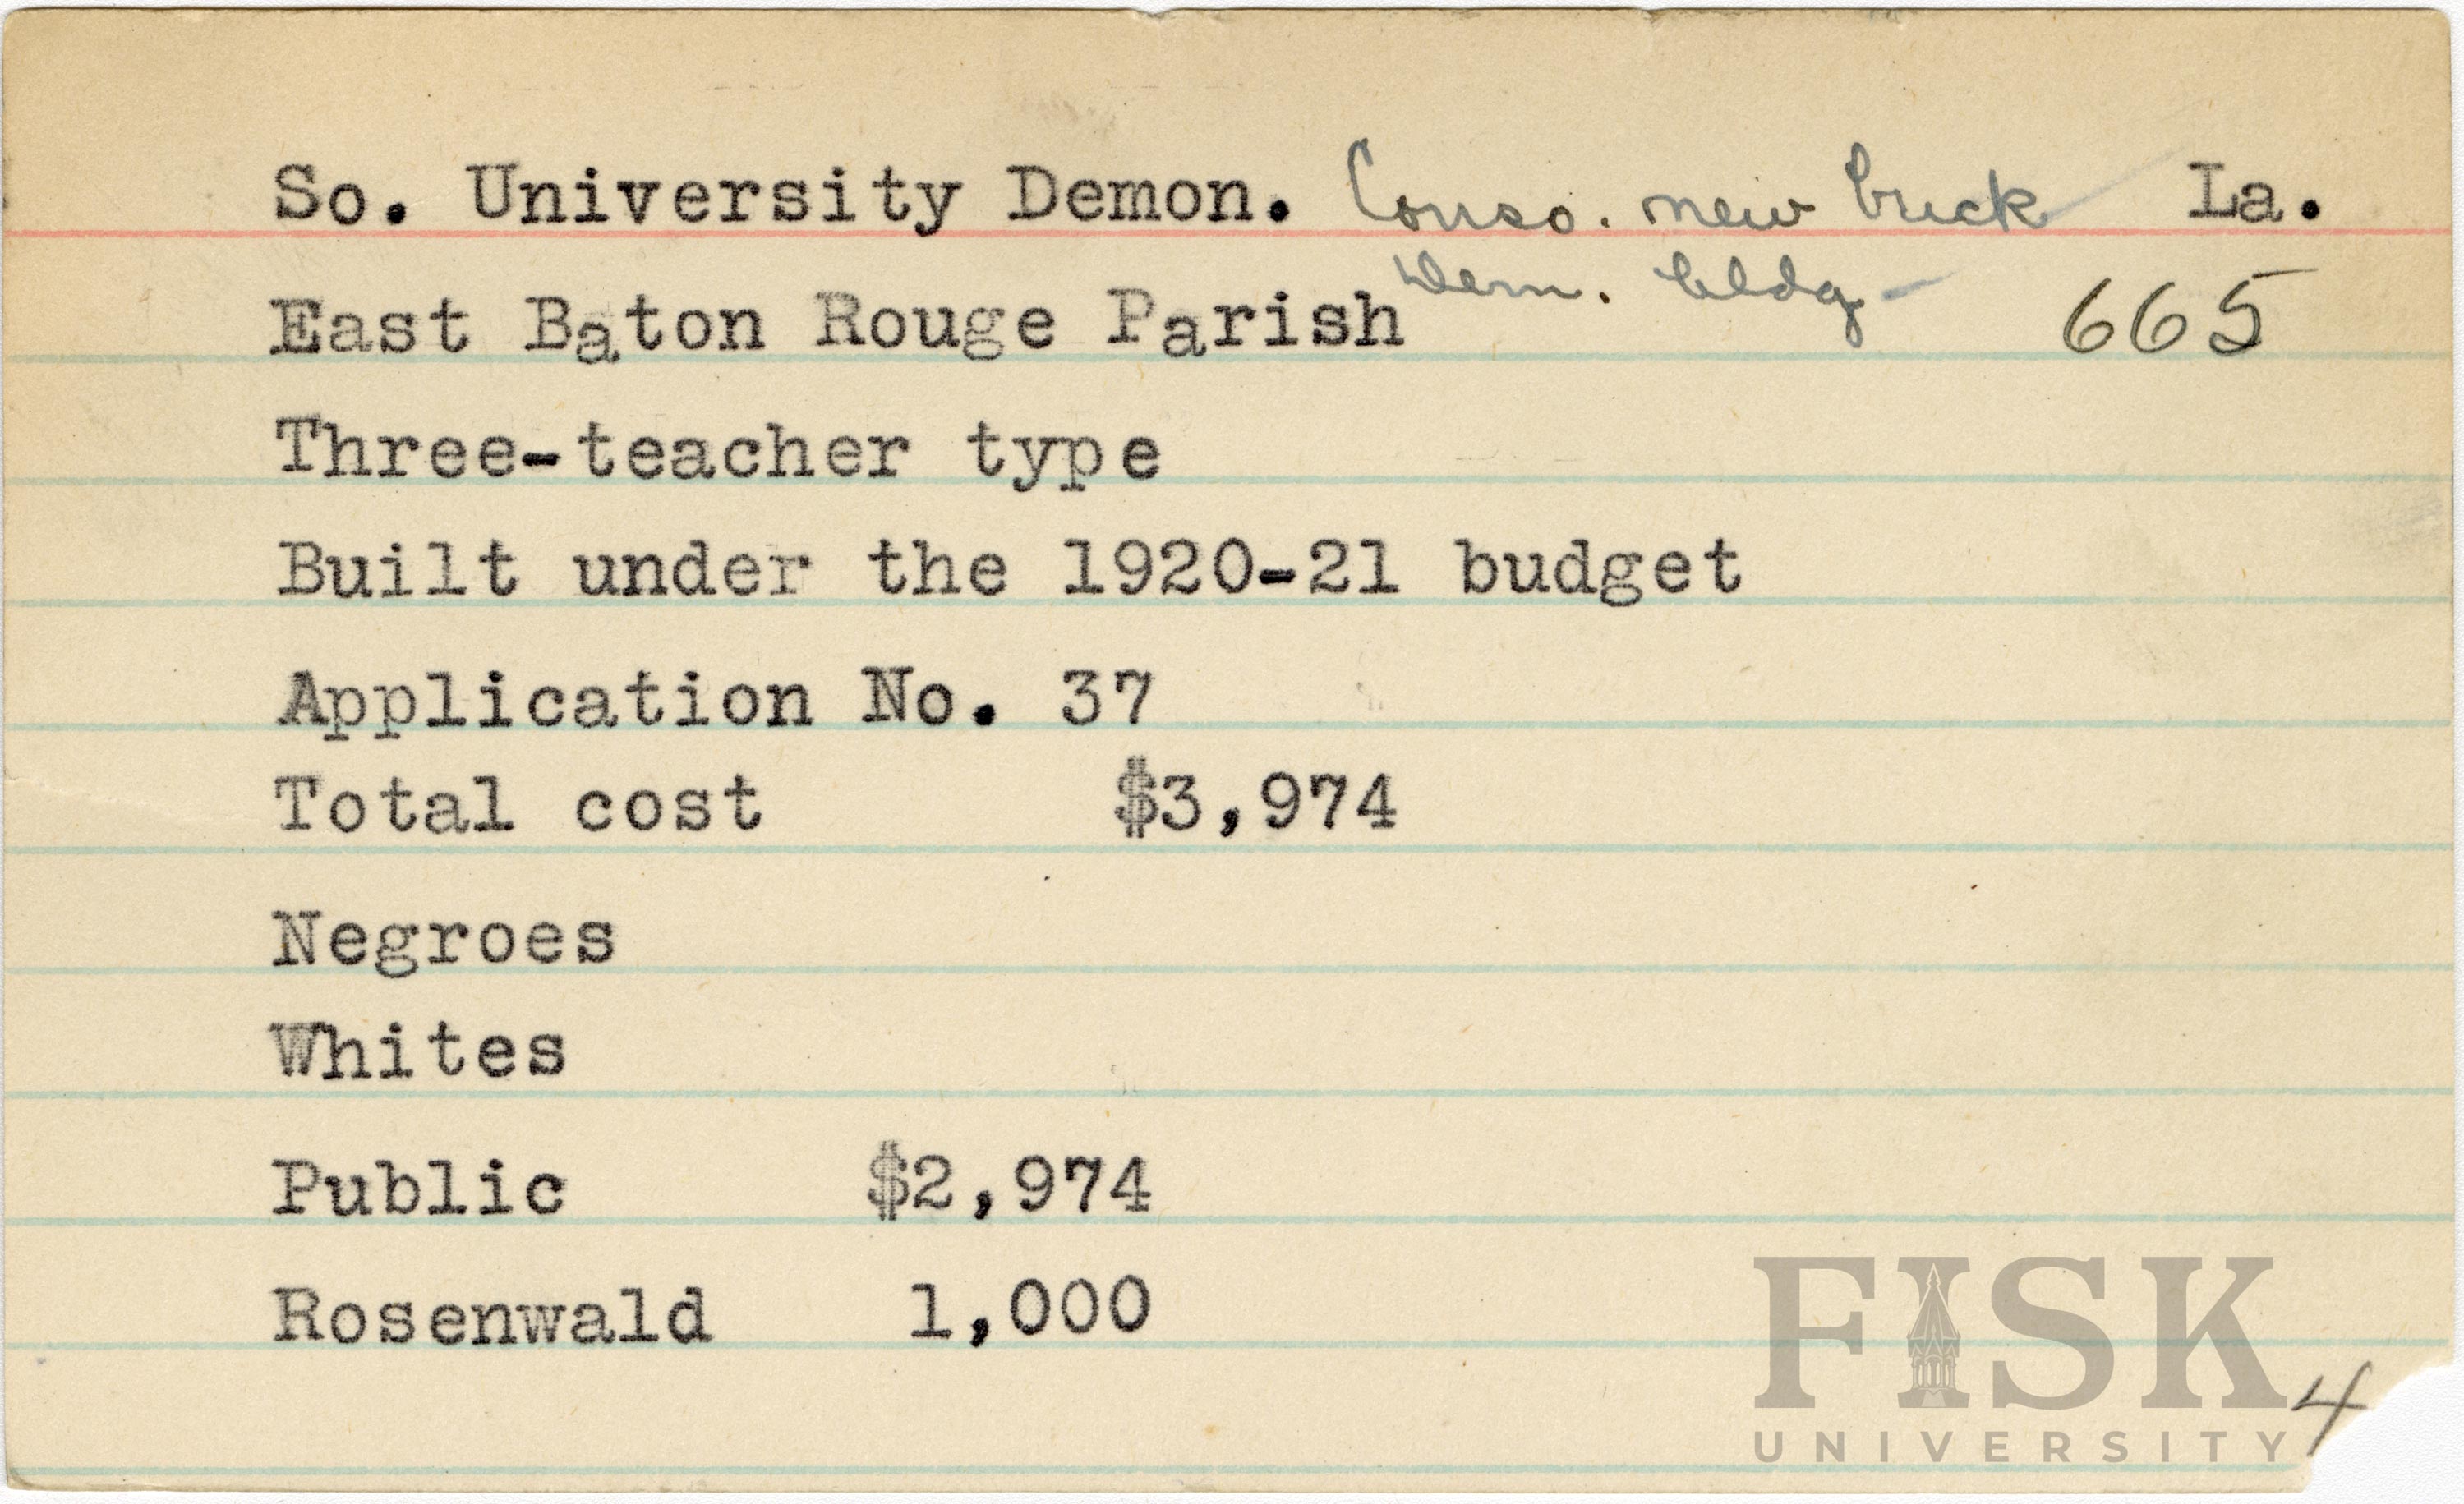 So. University Demon. Conso. new brick La.
Dem. bldg-
East Baton Rouge Parish 665
Three-teacher type
Built under the 1920-21 budget
Application No. 37
Total cost $3,974
Negroes
Whites
Public $2,974
Rosenwald 1,000
4
FISK
UNIVERSITY